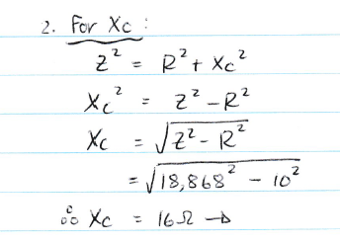 2. For Xc :
Z² = R² + Xc²
Xc² = Z² - R²
Xc = √Z² - R²
= √18,868² - 10²
∴ Xc = 16Ω →